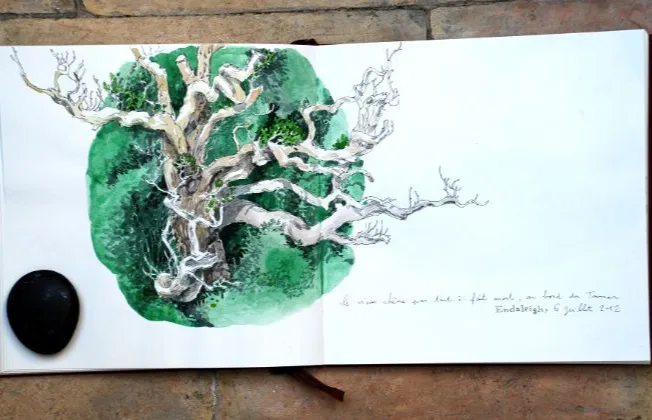 le vieux chêne pas tout à fait mort, au bord du Tamar
Endsleigh, 6 juillet 2012